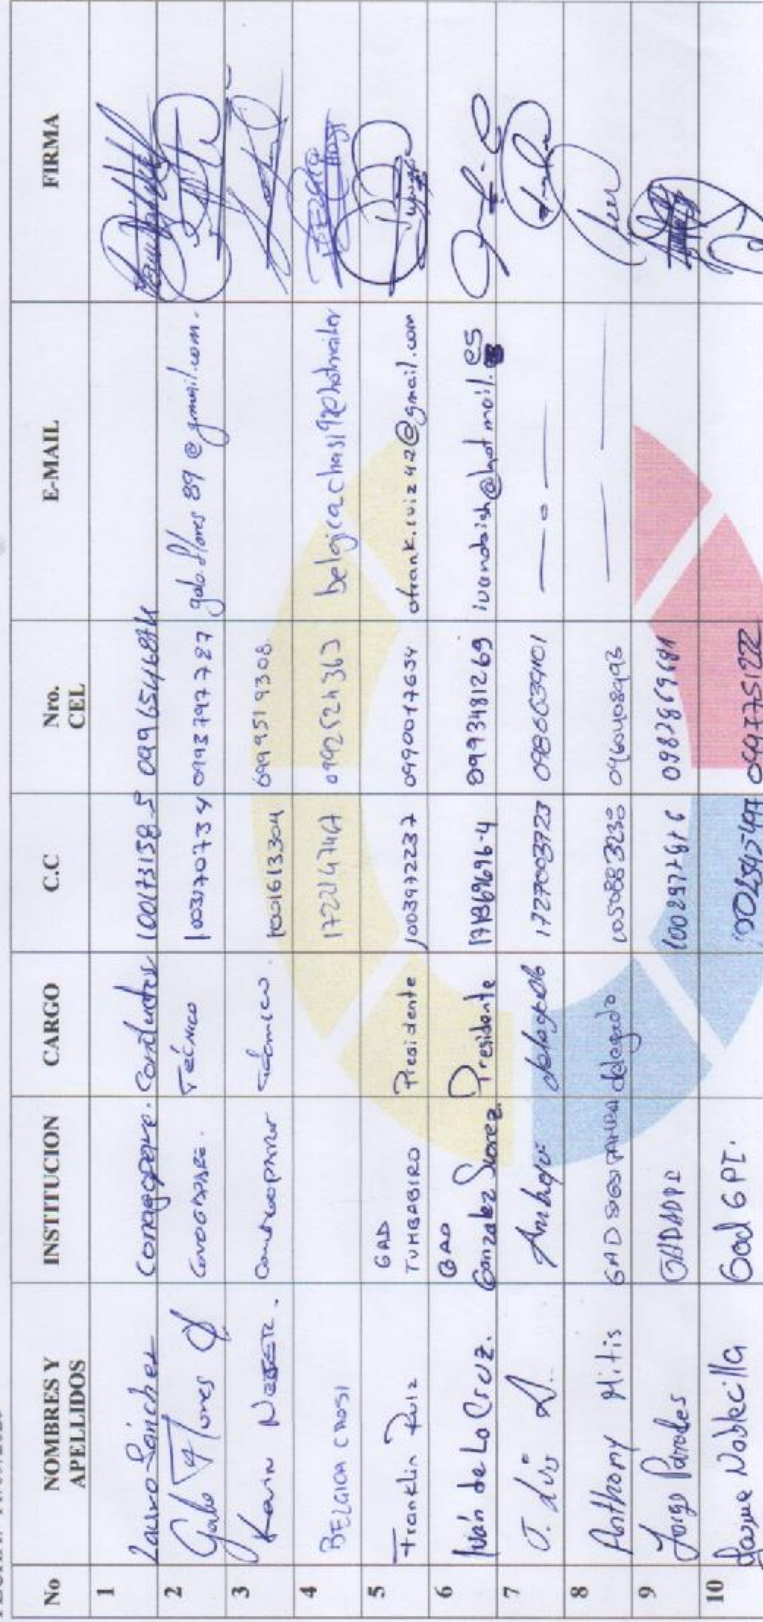 No NOMBRES Y APELLIDOS INSTITUCION CARGO C.C Nro. CEL E-MAIL FIRMA
1 Lauro Sánchez Conagopare. Conductor 100173158-5
2 Galo Flores Conagopare. Técnico 1003170734 0993797787 galo.flores 89 @ gmail.com.
3 Conagopare Técnico. 1001613304 0999519308
4 BELGICA CHASI 1722147467 0992524363
5 Franklin Ruiz GAD TUMBABIRO Presidente 1003972237 0990017654 ofrank.ruiz42@gmail.com
6 Iván de La Cruz. GAD Gonzalez Suarez. Presidente 171869696-4 0993481269 ivandsich@hotmail.es
7 J. Luis A. Ambuqui delegado 1727003723 — o —
8 Anthony Mitis GAD delegado 1050883230 0960408993 — —
9 Jorge Paredes 0982869681
10 Noblecilla Gad GPI. 0997751222